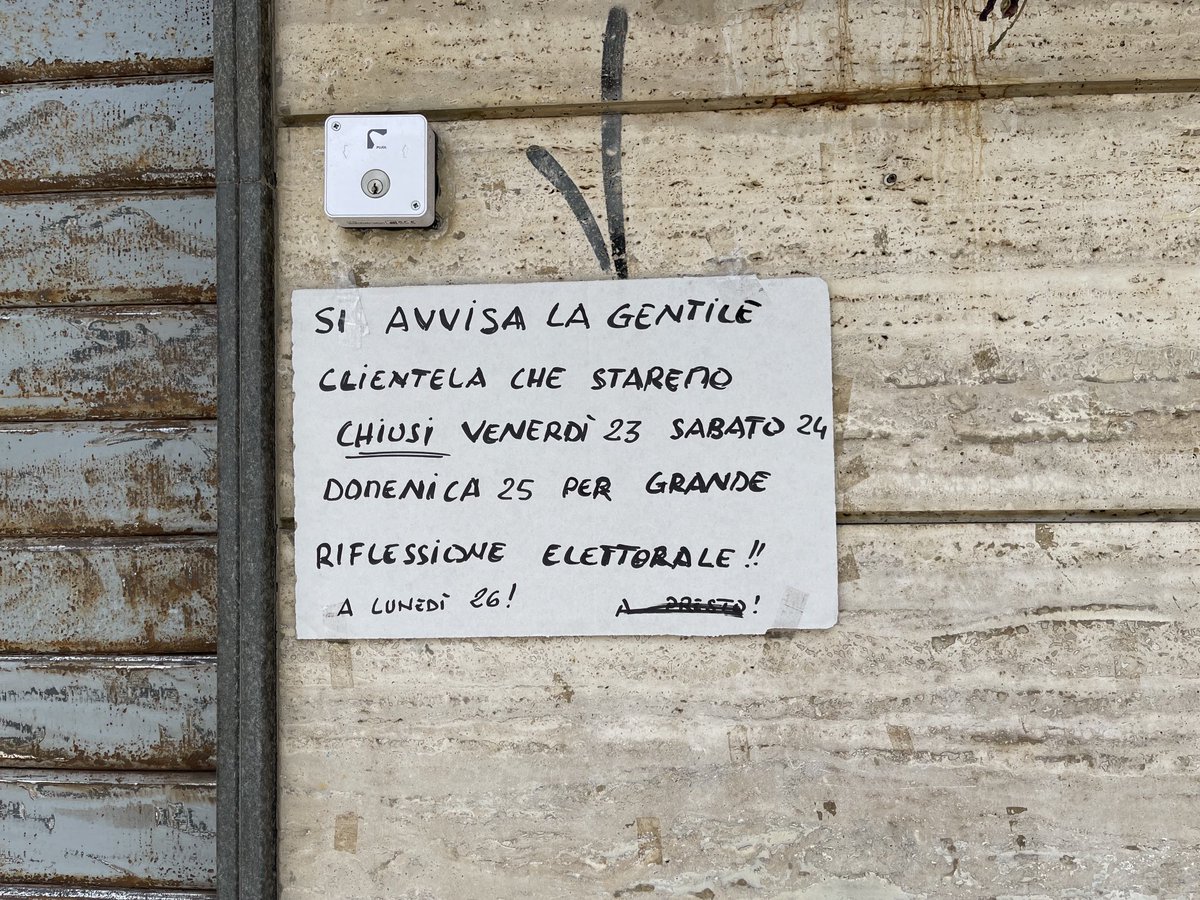 SI AVVISA LA GENTILE
CLIENTELA CHE STAREMO
CHIUSI VENERDÌ 23 SABATO 24
DOMENICA 25 PER GRANDE
RIFLESSIONE ELETTORALE!!
A LUNEDÌ 26! A PRESTO!